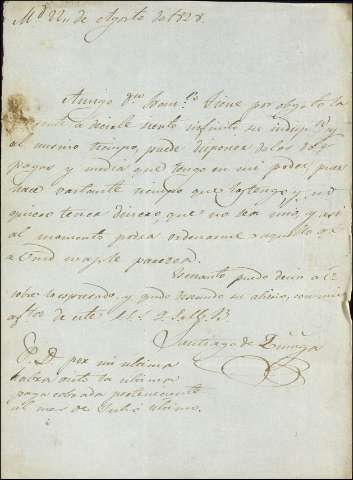 Md 22,, de Agosto de 1828.
Amigo Dn Franco tiene por objeto la
a decirle siento infinito su indispn y
al mismo tiempo, puede disponer de las dos
pagas y media que tengo en mi poder, pues
hace bastante tiempo que las tengo, y no
quiero tener dinero que no sea mio, y asi
al momento podra ordenarme aquello qe
a Vmd mas le parezca.
Es cuanto puedo decir a V.
sobre lo expresado, y quedo deseando su alivio, con
de este
Santiago de Zuñiga
P.D. por mi ultima
habra visto la ultima
paga cobrada perteneciente
al mes de Julio ultimo.